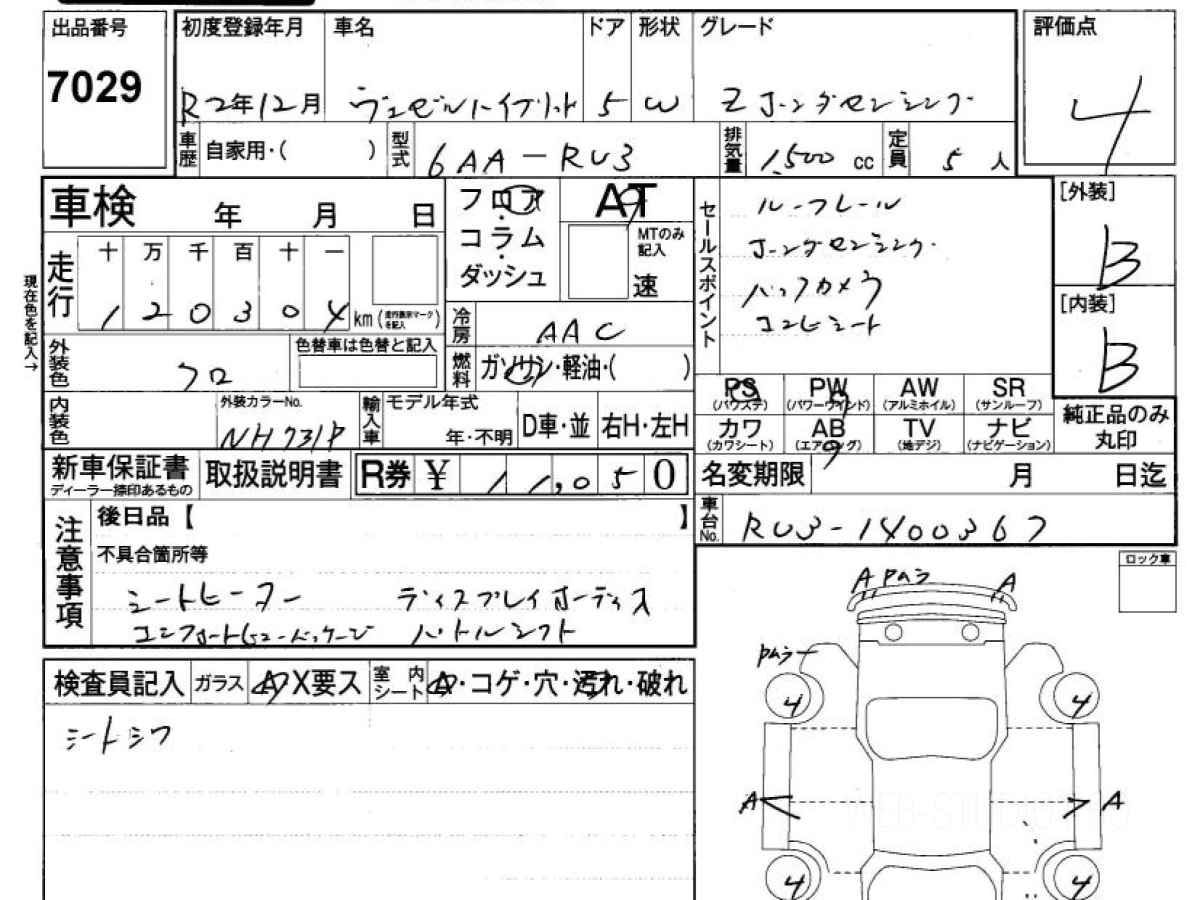 出品番号 初度登録年月 車名 ドア 形状 グレード 評価点
7029 R2年12月 ヴェゼルハイブリット 5 W Z ホンダセンシング 4
車歴 自家用・( ) 型式 6AA-RU3 排気量 1,500 cc 定員 5 人
車検 年 月 日
フロア・コラム・ダッシュ AT
MTのみ記入 速
セールスポイント
ルーフレール
ホンダセンシング
バックカメラ
コンビシート
[外装] B
[内装] B
現在色を記入→
走行 十 万 千 百 十 一
1 2 0 3 0 4 km (走行表示マークを記入)
冷房 AAC
外装色 クロ 色替車は色替と記入
燃料 ガソリン・軽油・( )
PS (パワステ) PW (パワーウインド) AW (アルミホイル) SR (サンルーフ)
カワ (カワシート) AB (エアバッグ) TV (地デジ) ナビ (ナビゲーション)
純正品のみ丸印
内装色 外装カラーNo. NH731P 輸入車 モデル年式 年・不明 D車・並 右H・左H
新車保証書 ディーラー捺印あるもの 取扱説明書 R券 ¥ 11,050
名変期限 月 日迄
車台No. RU3-1400367
注意事項 後日品【 】
不具合箇所等
シートヒーター ディスプレイオーディオ
コンフォートビューパッケージ パドルシフト
ロック車
検査員記入 ガラス A X要ス 室内シート A・コゲ・穴・汚れ・破れ
シートシワ
A Pムラ A
Pムラ
4 4
A A
4 4
WEB-STUDIO.PRO